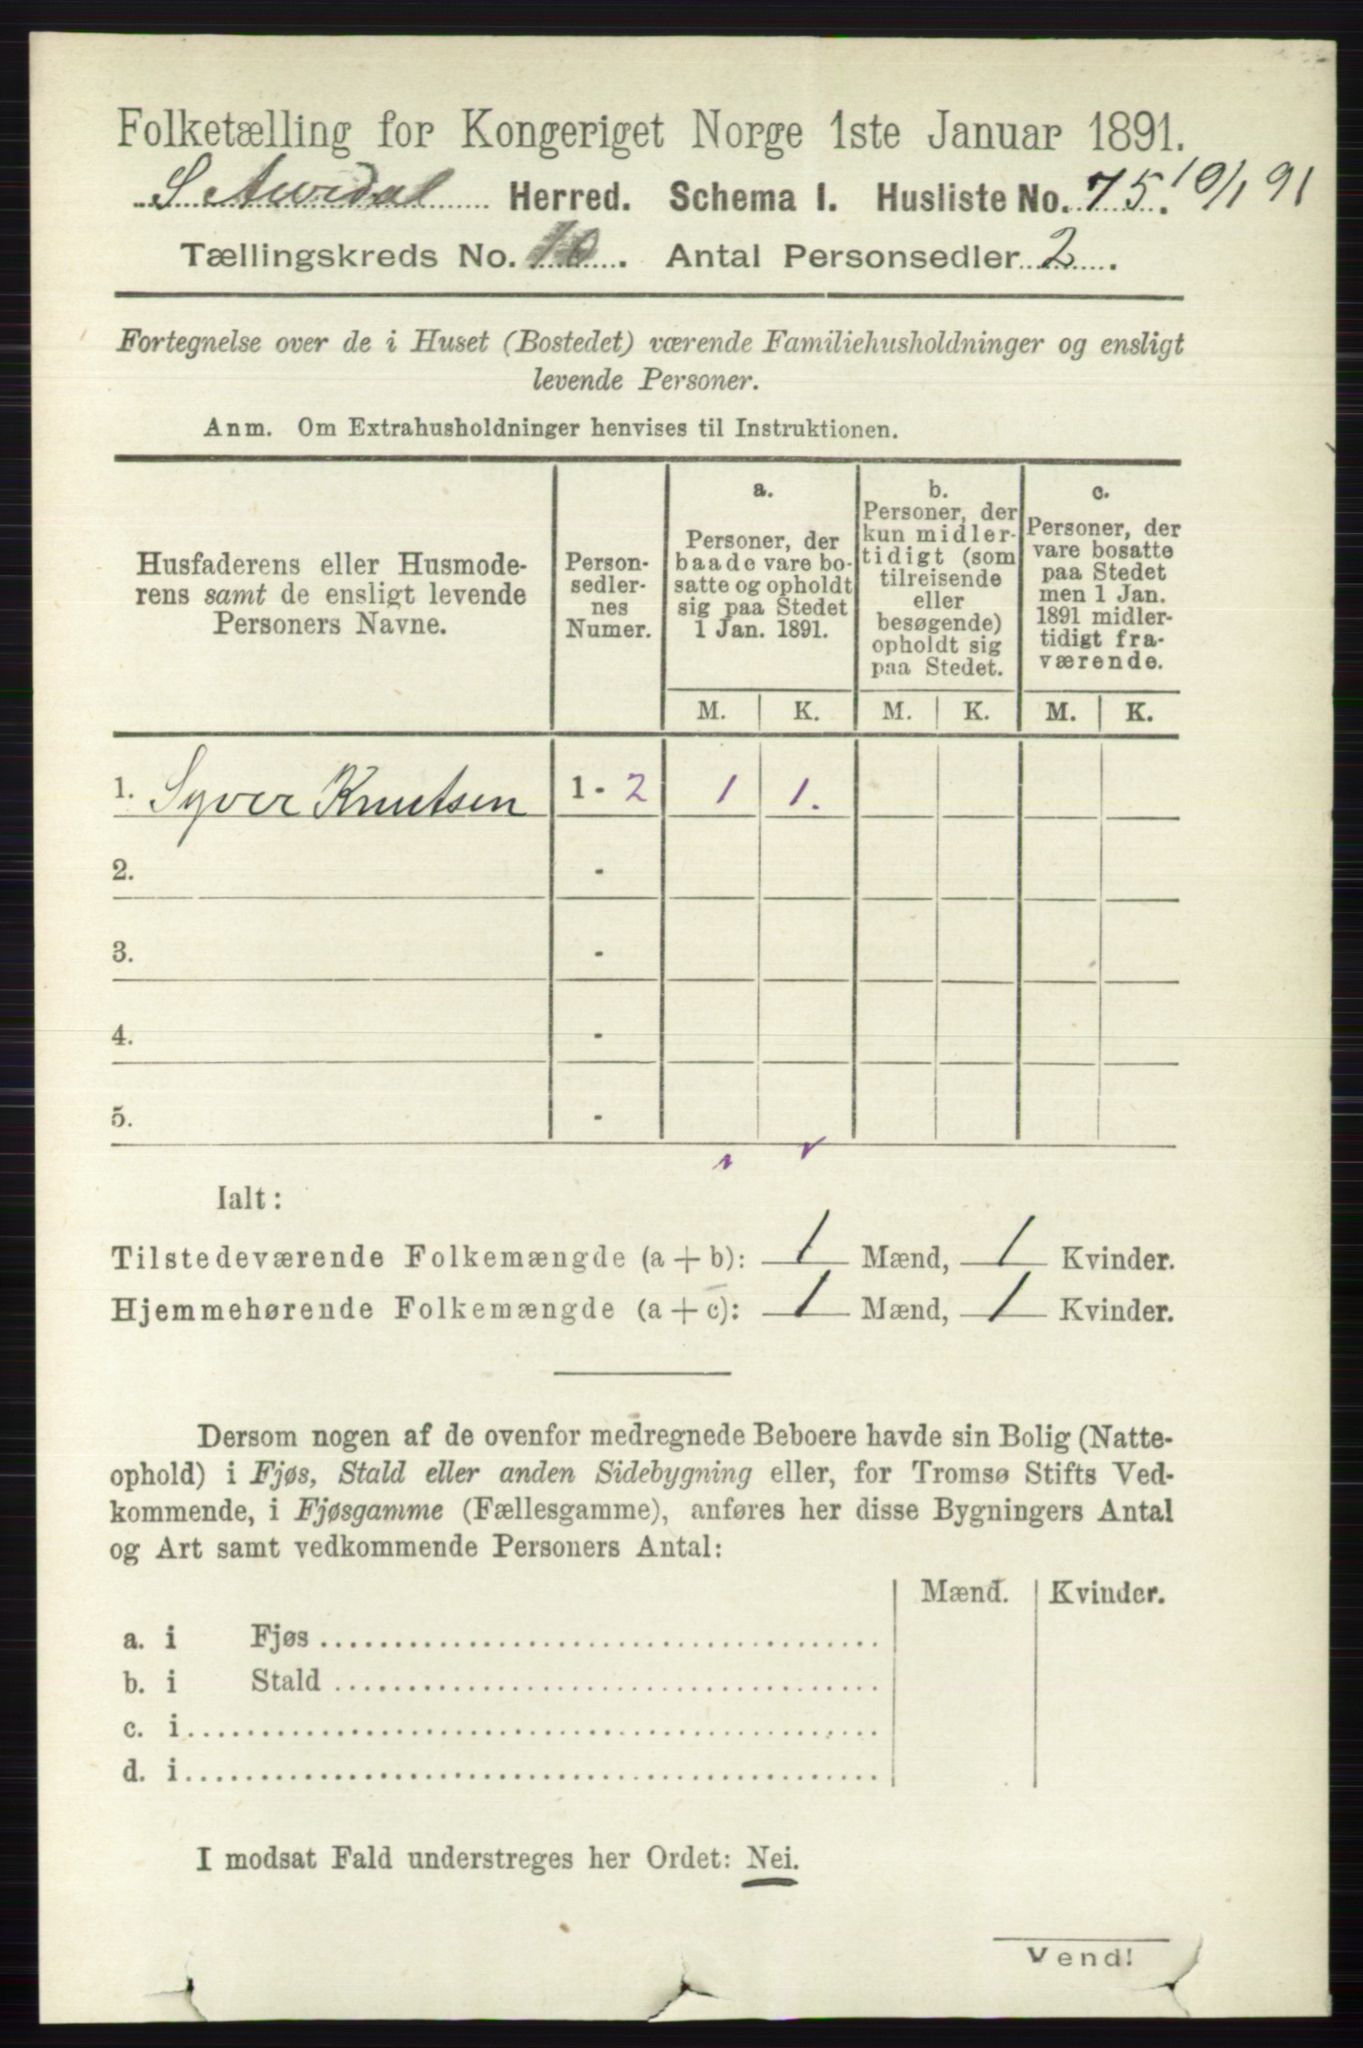 Folketælling for Kongeriget Norge 1ste Januar 1891.
S. Aurdal Herred. Schema I. Husliste No. 75. 10/1 91
Tællingskreds No. 10. Antal Personsedler 2.
Fortegnelse over de i Huset (Bostedet) værende Familiehusholdninger og ensligt
levende Personer.
Anm. Om Extrahusholdninger henvises til Instruktionen.
Husfaderens eller Husmode-
rens samt de ensligt levende
Personers Navne.
Person-
sedler-
nes
Numer.
a.
Personer, der
baade vare bo-
satte og opholdt
sig paa Stedet
1 Jan. 1891.
b.
Personer, der
kun midler-
tidigt (som
tilreisende
eller
besøgende)
opholdt sig
paa Stedet.
c.
Personer, der
vare bosatte
paa Stedet
men 1 Jan.
1891 midler-
tidigt fra-
værende.
M. K. M. K. M. K.
1. Syver Knutsen 1 - 2 1 1.
2. -
3. -
4. -
5. -
Ialt:
Tilstedeværende Folkemængde (a + b): 1 Mænd, 1 Kvinder.
Hjemmehørende Folkemængde (a + c): 1 Mænd, 1 Kvinder.
Dersom nogen af de ovenfor medregnede Beboere havde sin Bolig (Natte-
ophold) i Fjøs, Stald eller anden Sidebygning eller, for Tromsø Stifts Ved-
kommende, i Fjøsgamme (Fællesgamme), anføres her disse Bygningers Antal
og Art samt vedkommende Personers Antal:
Mænd. Kvinder.
a. i Fjøs
b. i Stald
c. i
d. i
I modsat Fald understreges her Ordet: Nei.
Vend!